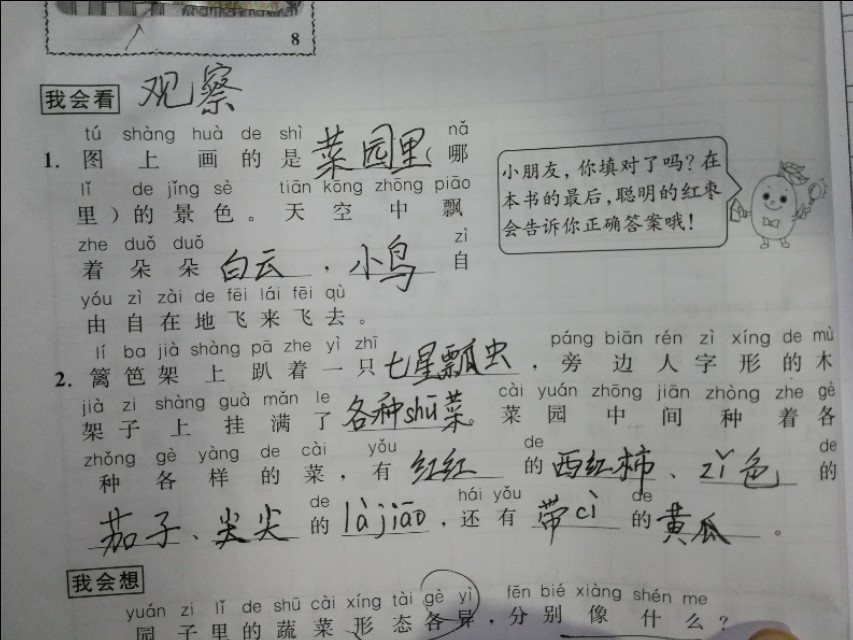 8
我会看 观察
tú shàng huà de shì nǎ
1. 图上画的是菜园里(哪
lǐ de jǐng sè tiān kōng zhōng piāo
里)的景色。天空中飘
zhe duǒ duǒ zì
着朵朵白云,小鸟自
yóu zì zài de fēi lái fēi qù
由自在地飞来飞去。
小朋友,你填对了吗?在
本书的最后,聪明的红枣
会告诉你正确答案哦!
lí ba jià shàng pā zhe yì zhī páng biān rén zì xíng de mù
2. 篱笆架上趴着一只七星瓢虫,旁边人字形的木
jià zi shàng guà mǎn le cài yuán zhōng jiān zhòng zhe gè
架子上挂满了各种shū菜。菜园中间种着各
zhǒng gè yàng de cài yǒu de de
种各样的菜,有红红的西红柿、zǐ色的
de hái yǒu de
茄子、尖尖的là jiāo,还有带cì的黄瓜。
我会想
yuán zi lǐ de shū cài xíng tài gè yì fēn bié xiàng shén me
园子里的蔬菜形态各异,分别像什么?